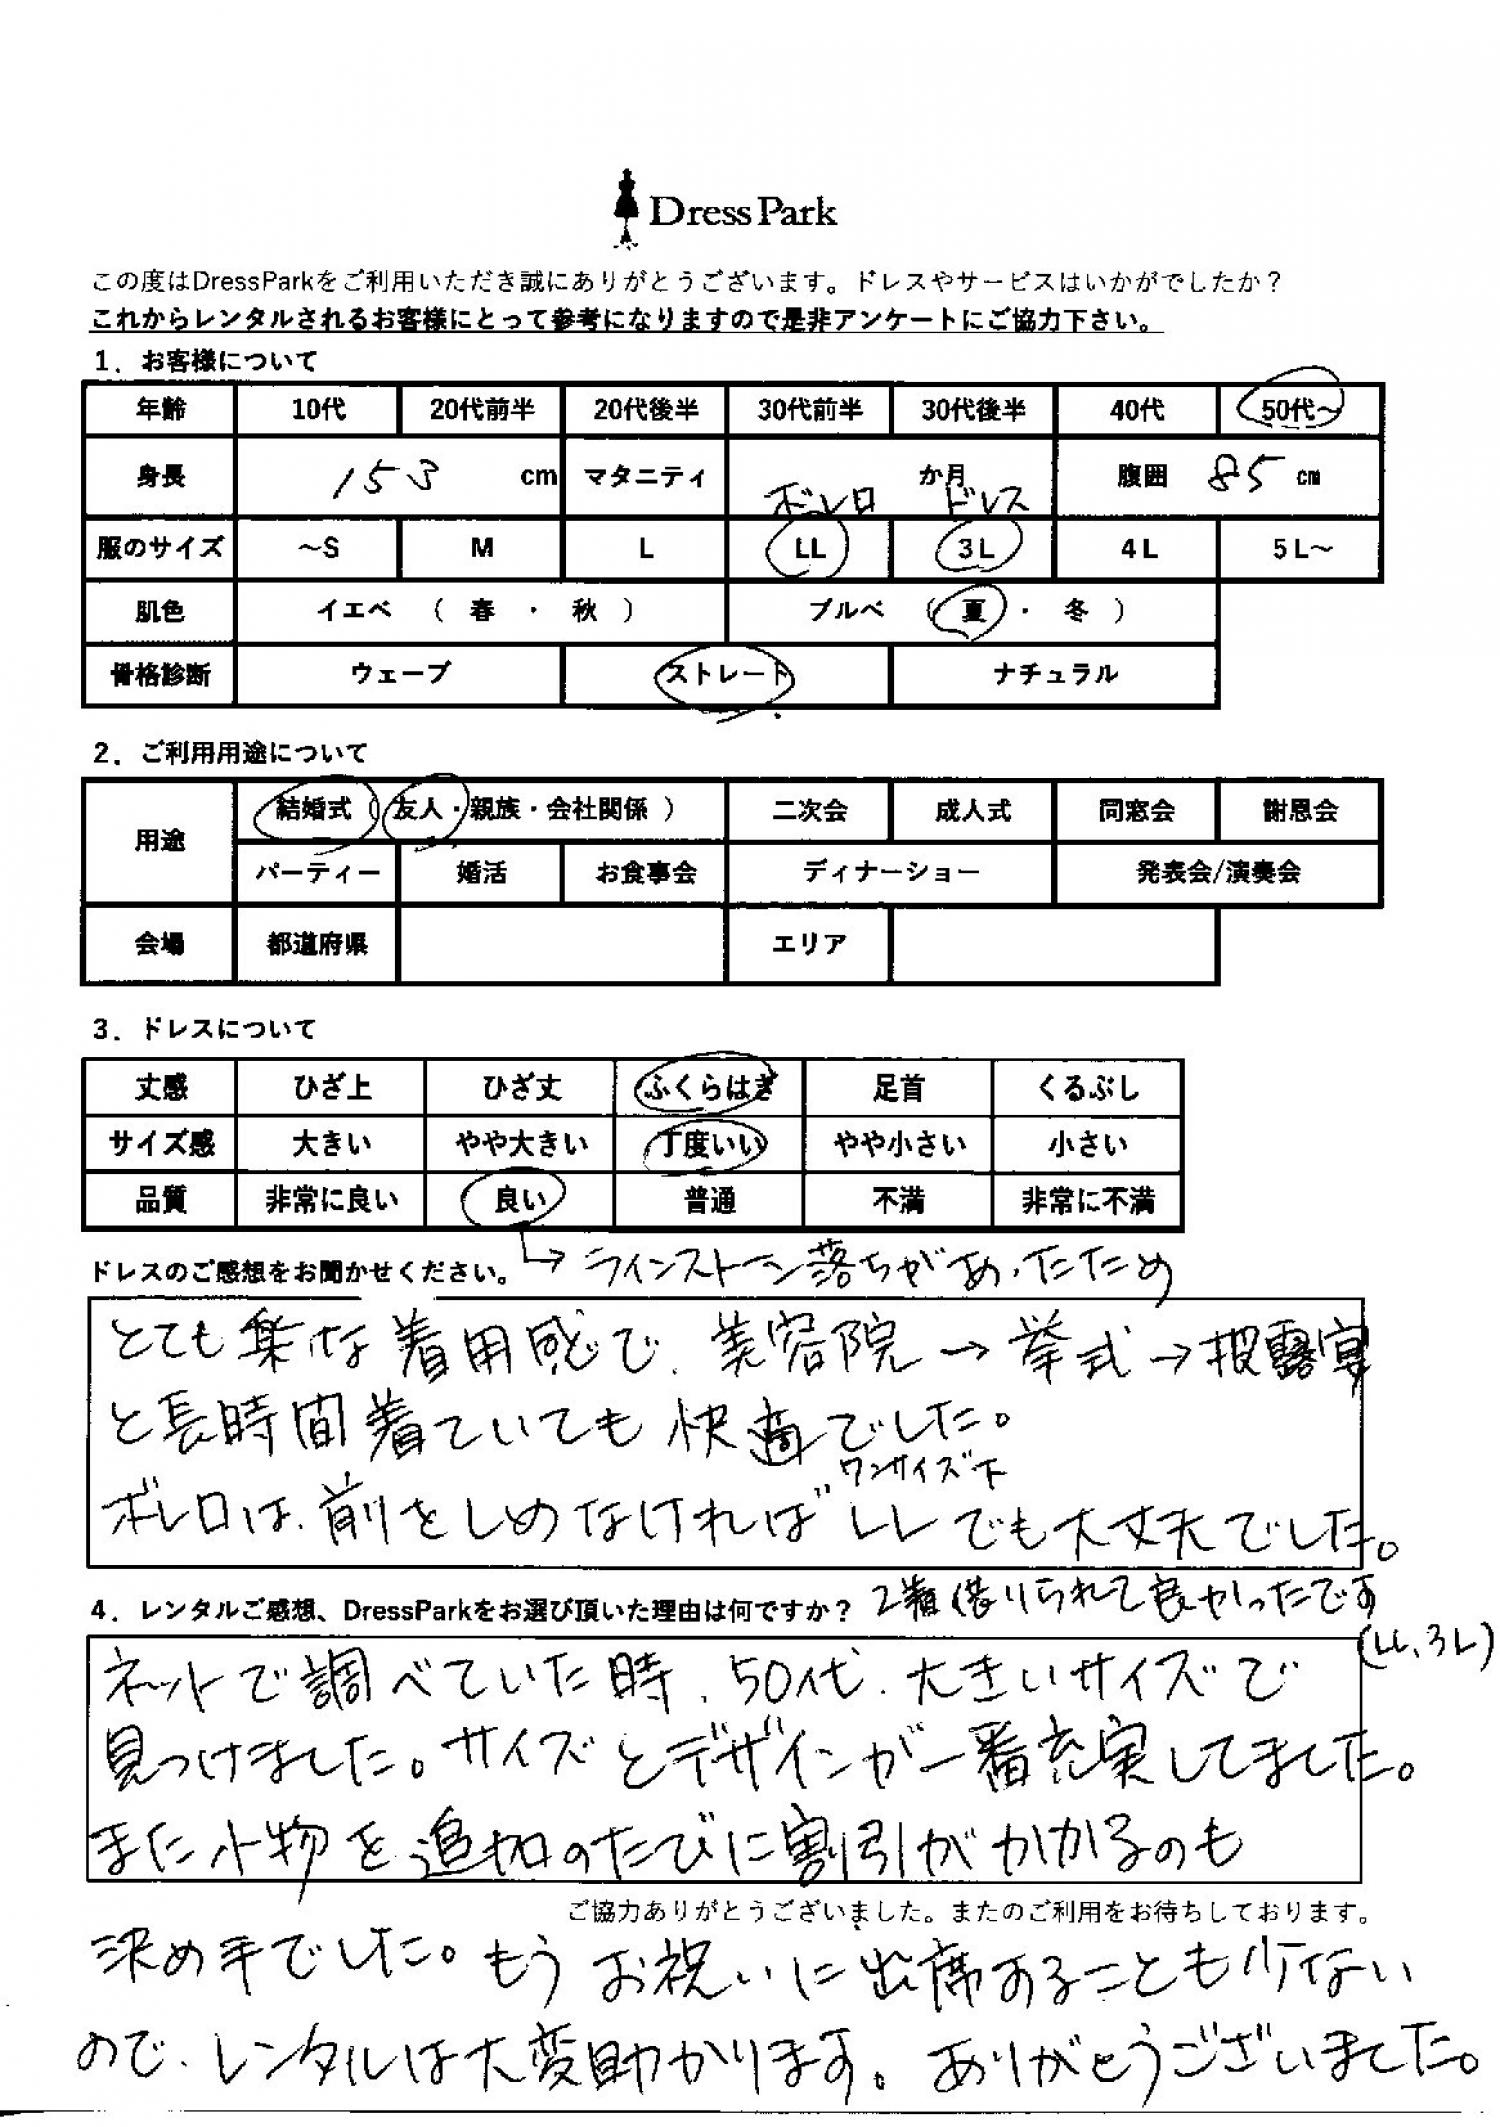 Dress Park
この度はDressParkをご利用いただき誠にありがとうございます。ドレスやサービスはいかがでしたか？
これからレンタルされるお客様にとって参考になりますので是非アンケートにご協力下さい。
1．お客様について
年齢 10代 20代前半 20代後半 30代前半 30代後半 40代 50代～
身長 153 cm マタニティ か月 腹囲 85 cm
ボレロ ドレス
服のサイズ ～S M L LL 3L 4L 5L～
肌色 イエベ （ 春 ・ 秋 ） ブルベ （ 夏 ・ 冬 ）
骨格診断 ウェーブ ストレート ナチュラル
2．ご利用用途について
用途 結婚式（ 友人・親族・会社関係 ） 二次会 成人式 同窓会 謝恩会
パーティー 婚活 お食事会 ディナーショー 発表会/演奏会
会場 都道府県 エリア
3．ドレスについて
丈感 ひざ上 ひざ丈 ふくらはぎ 足首 くるぶし
サイズ感 大きい やや大きい 丁度いい やや小さい 小さい
品質 非常に良い 良い 普通 不満 非常に不満
ドレスのご感想をお聞かせください。 → ラインストーン落ちがあったため
とても楽な着用感で、美容院→挙式→披露宴
と長時間着ていても快適でした。
ワンサイズ下
ボレロは、前をしめなければ LLでも大丈夫でした。
4．レンタルご感想、DressParkをお選び頂いた理由は何ですか？ 2着借りられて良かったです
(LL、3L)
ネットで調べていた時、50代、大きいサイズで
見つけました。サイズとデザインが一番充実してました。
また小物を追加のたびに割引がかかるのも
ご協力ありがとうございました。またのご利用をお待ちしております。
決め手でした。もうお祝いに出席することも少ない
ので、レンタルは大変助かります。ありがとうございました。